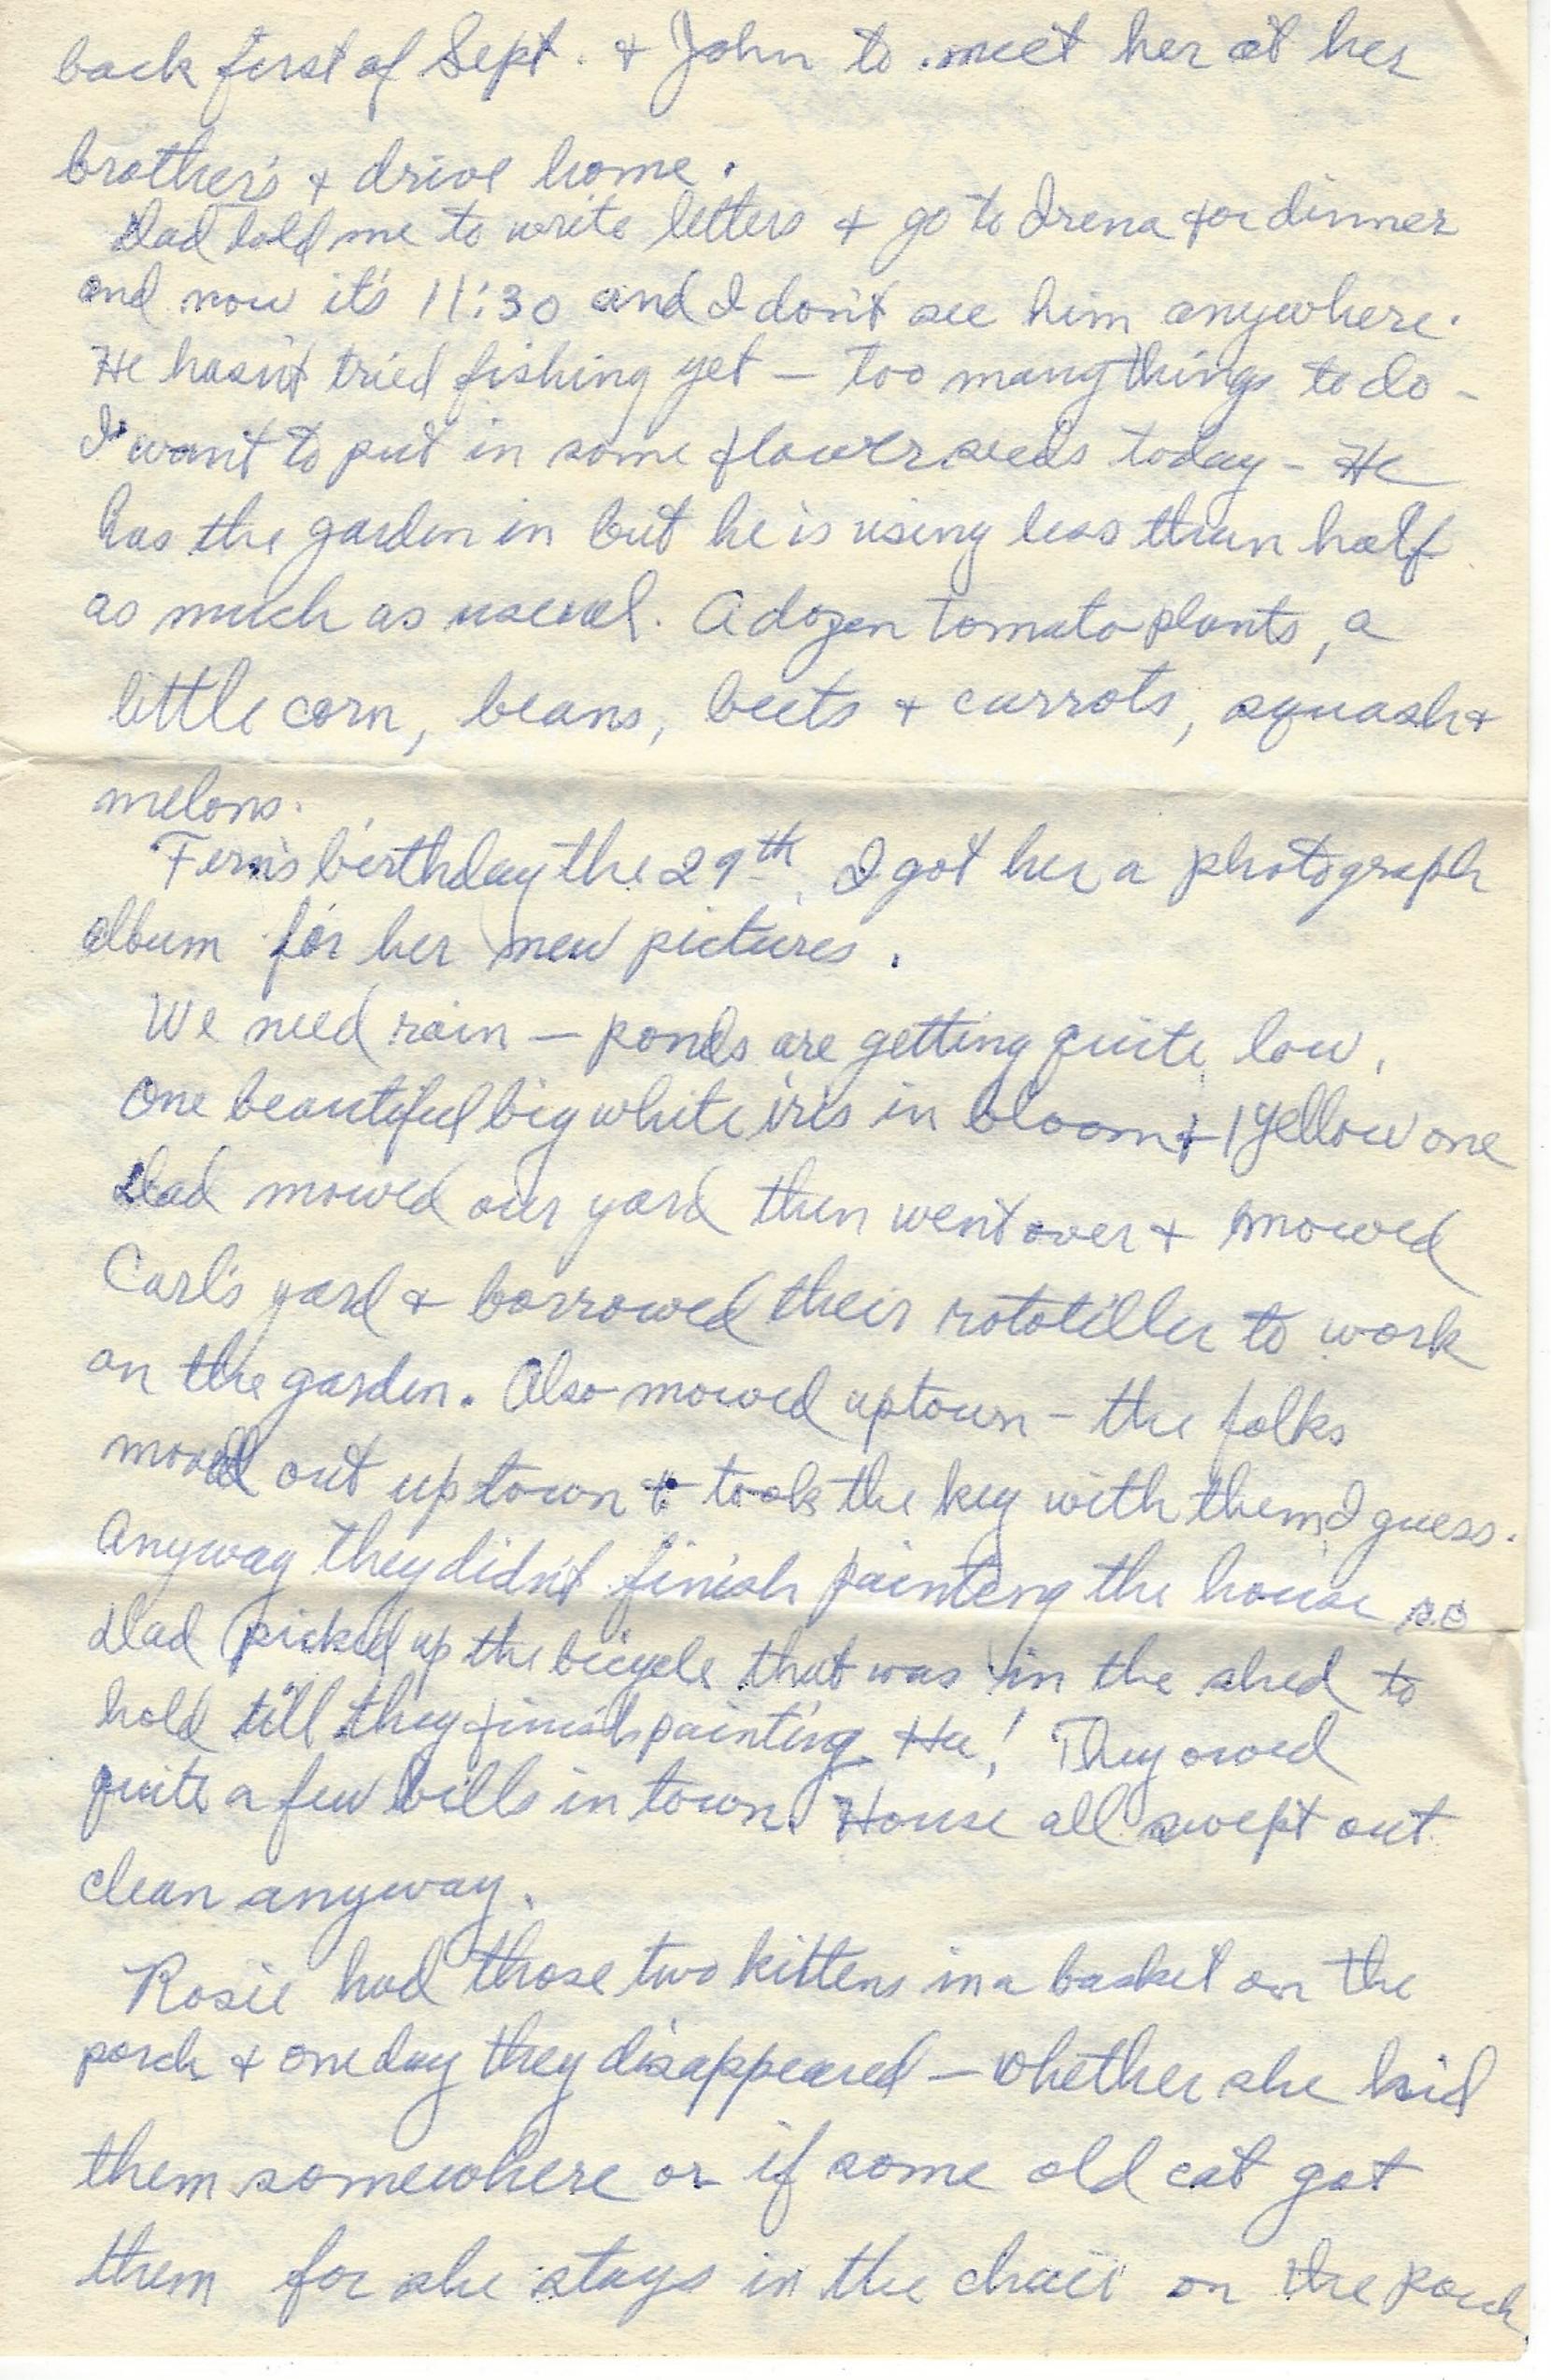 back first of Sept. + John to meet her at her
brother's + drive home.
Dad told me to write letters + go to Irena for dinner
and now it's 11:30 and I don't see him anywhere.
He hasn't tried fishing yet – too many things to do –
I want to put in some flower seeds today – He
has the garden in but he is using less than half
as much as useual. A dozen tomato plants, a
little corn, beans, beets + carrots, squash +
melons.
Fern's birthday the 29th. I got her a photograph
album for her new pictures.
We need rain – ponds are getting quite low.
One beautiful big white iris in bloom + 1 yellow one
Dad mowed our yard then went over + mowed
Carl's yard + borrowed their rototiller to work
on the garden. Also mowed uptown – the folks
moved out up town + took the key with them I guess.
Anyway they didn't finish painting the house so
Dad picked up the bicycle that was in the shed to
hold till they finish painting Ha! They owed
quite a few bills in town. House all swept out
clean anyway.
Rosie had those two kittens in a basket on the
porch + one day they disappeared – whether she hid
them somewhere or if some old cat got
them for she stays in the chair on the porch